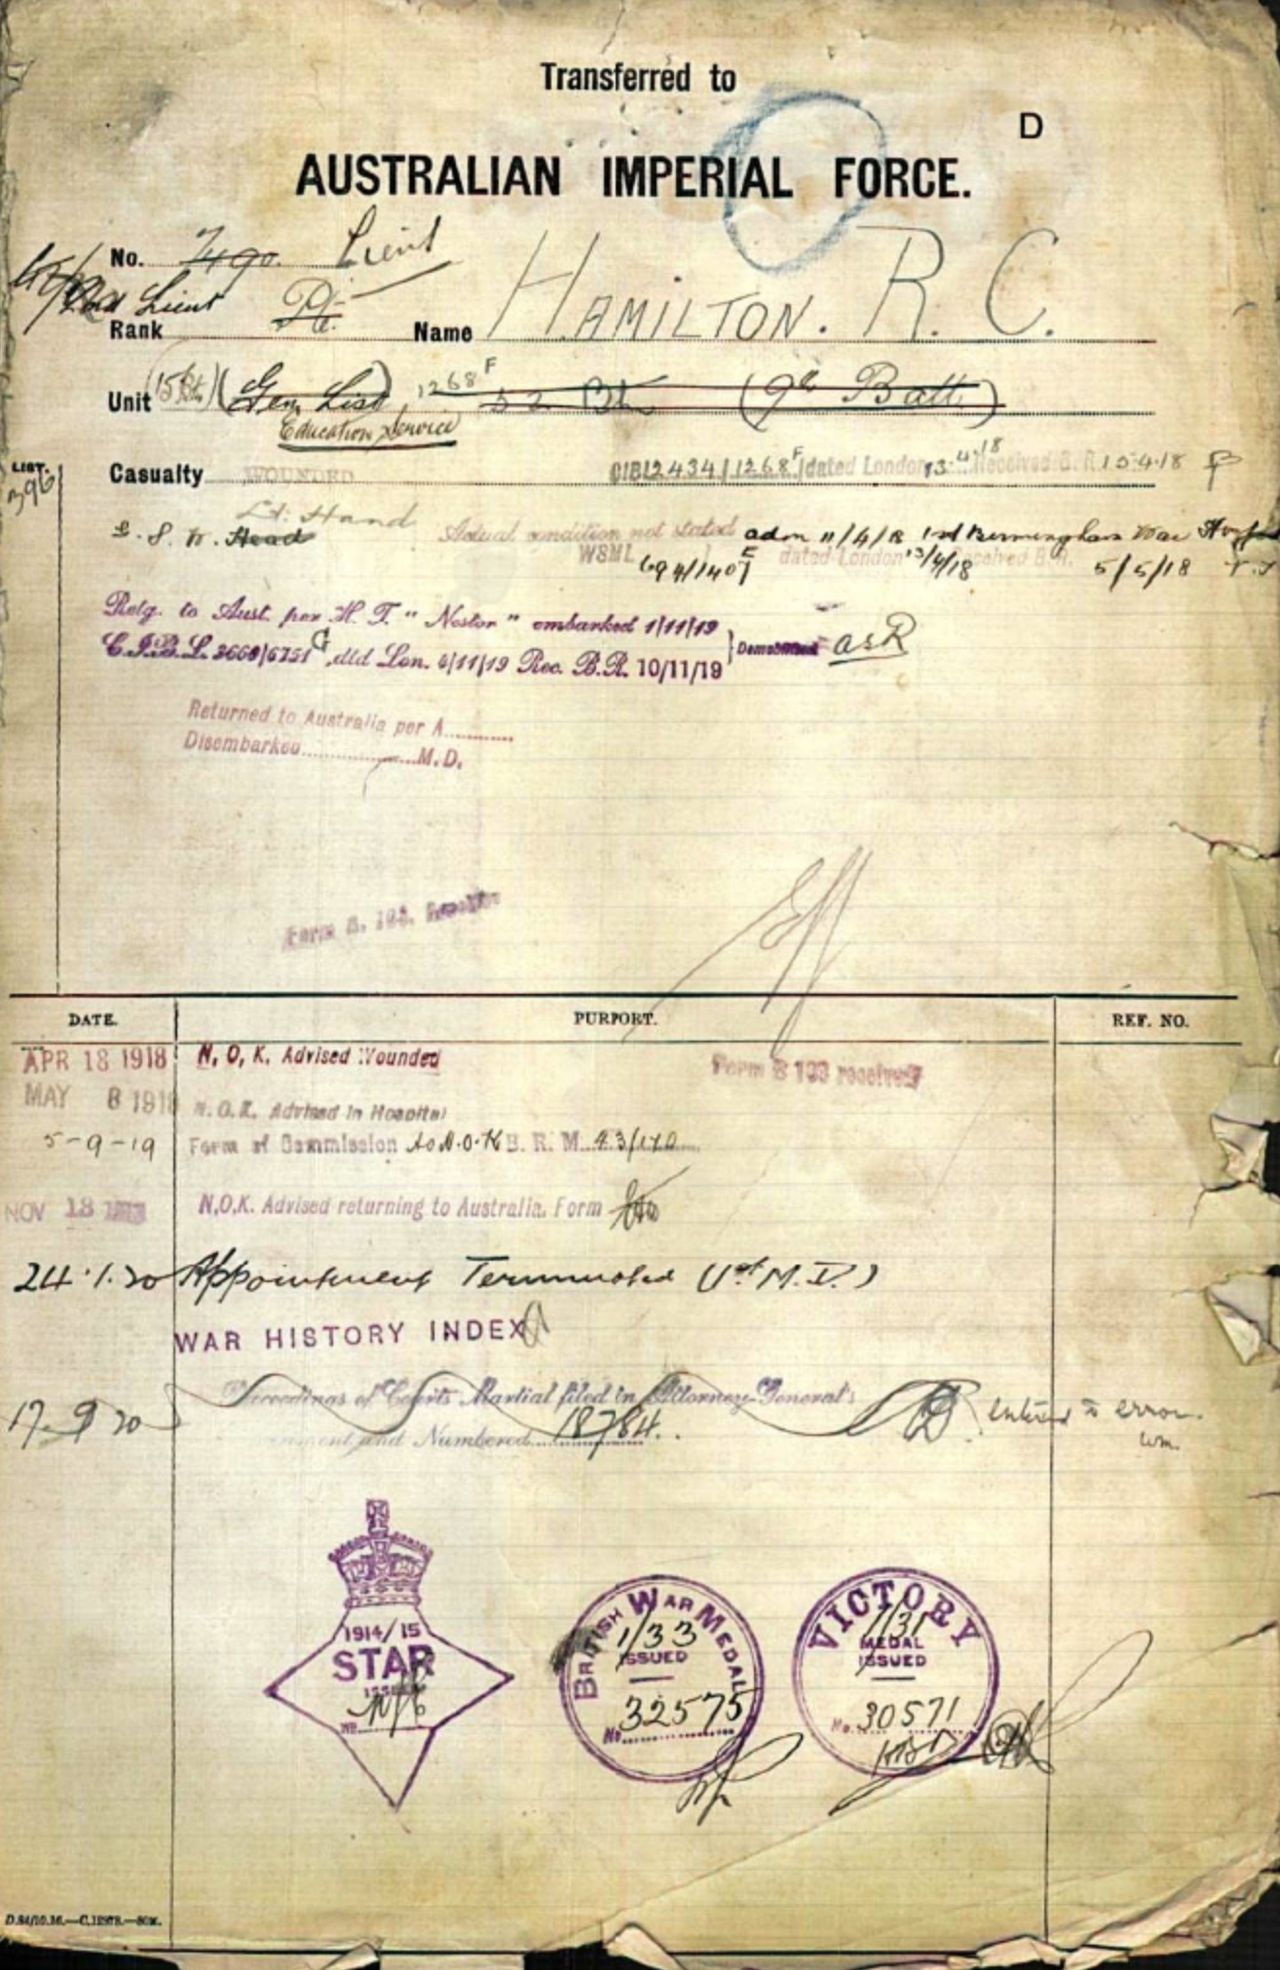 Transferred to
D
AUSTRALIAN IMPERIAL FORCE.
No. 7490. Lieut
2nd Lieut
Rank Pte Name HAMILTON. R. C.
Unit (15 Bn) (Gen. List) 1268 F 52 Bn (9th Batt.)
Education Service
LIST.
396
Casualty WOUNDED CIBL2434/1268 F/dated London 13.4.18 Received B.R. 15.4.18
Lt. Hand
G. S. W. Head Actual condition not stated adm 11/4/18 1st Birmingham War
WSML 694/1407 E dated London 13/4/18 Received B.R. 5/5/18
Retg. to Aust. per H. T. "Nestor" embarked 1/11/19
C.I.B.L. 3668/6751 G dtd Lon. 6/11/19 Rec. B.R. 10/11/19
Returned to Australia per A
Disembarked M.D.
Form B. 103. Received
DATE. PURPORT. REF. NO.
APR 18 1918 N. O. K. Advised Wounded Form B 103 received
MAY 8 1918 N.O.K. Advised in Hospital
5-9-19 Form of Commission to N.O.K B. R. M. 43/140
NOV 18 N.O.K. Advised returning to Australia. Form
24.1.20 Appointment Terminated (1st M.D.)
WAR HISTORY INDEX
Proceedings of Courts Martial filed in Attorney-General's
17-9-20 and Numbered 18784. entered in error.
1914/15
STAR
ISSUED
No.
BRITISH WAR MEDAL
1/33
ISSUED
No. 32575
VICTORY
1/31
MEDAL
ISSUED
No. 30571
D.84/10.16.—C.12978.—80M.